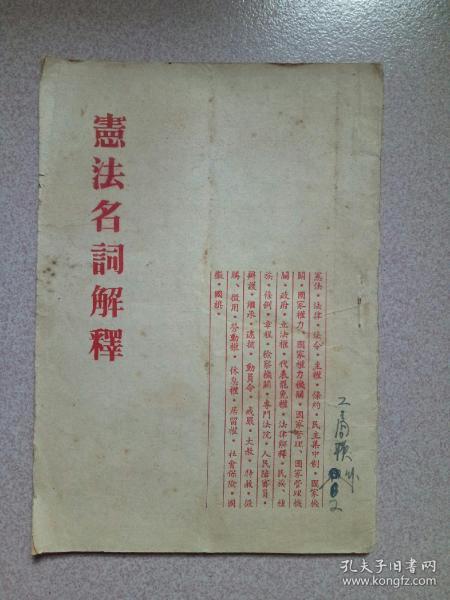 憲法名詞解釋
憲法・法律・法令・主權・條約・民主集中制・國家機
關・國家權力、國家權力機關・國家管理、國家管理機
關・政府・立法權・代表罷免權・法律解釋・民族、種
族・條例・章程・檢察機關・專門法院・人民陪審員・
辯護・繼承・逮捕・動員令・戒嚴・大赦・特赦・徵
購、徵用・勞動權・休息權・居留權・社會保險・國
徽・國旗・
孔夫子旧书网
www.kongfz.com